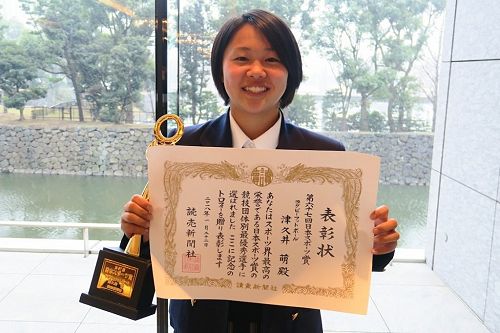 表彰状
第六十七回日本スポーツ賞
ラグビーフットボール
津久井 萌殿
あなたはスポーツ界最高の
栄誉である日本スポーツ賞の
競技団体別最優秀選手に
選ばれました ここに記念の
トロフィーを贈り表彰します
二〇一八年一月二十三日
読売新聞社
讀賣新聞社